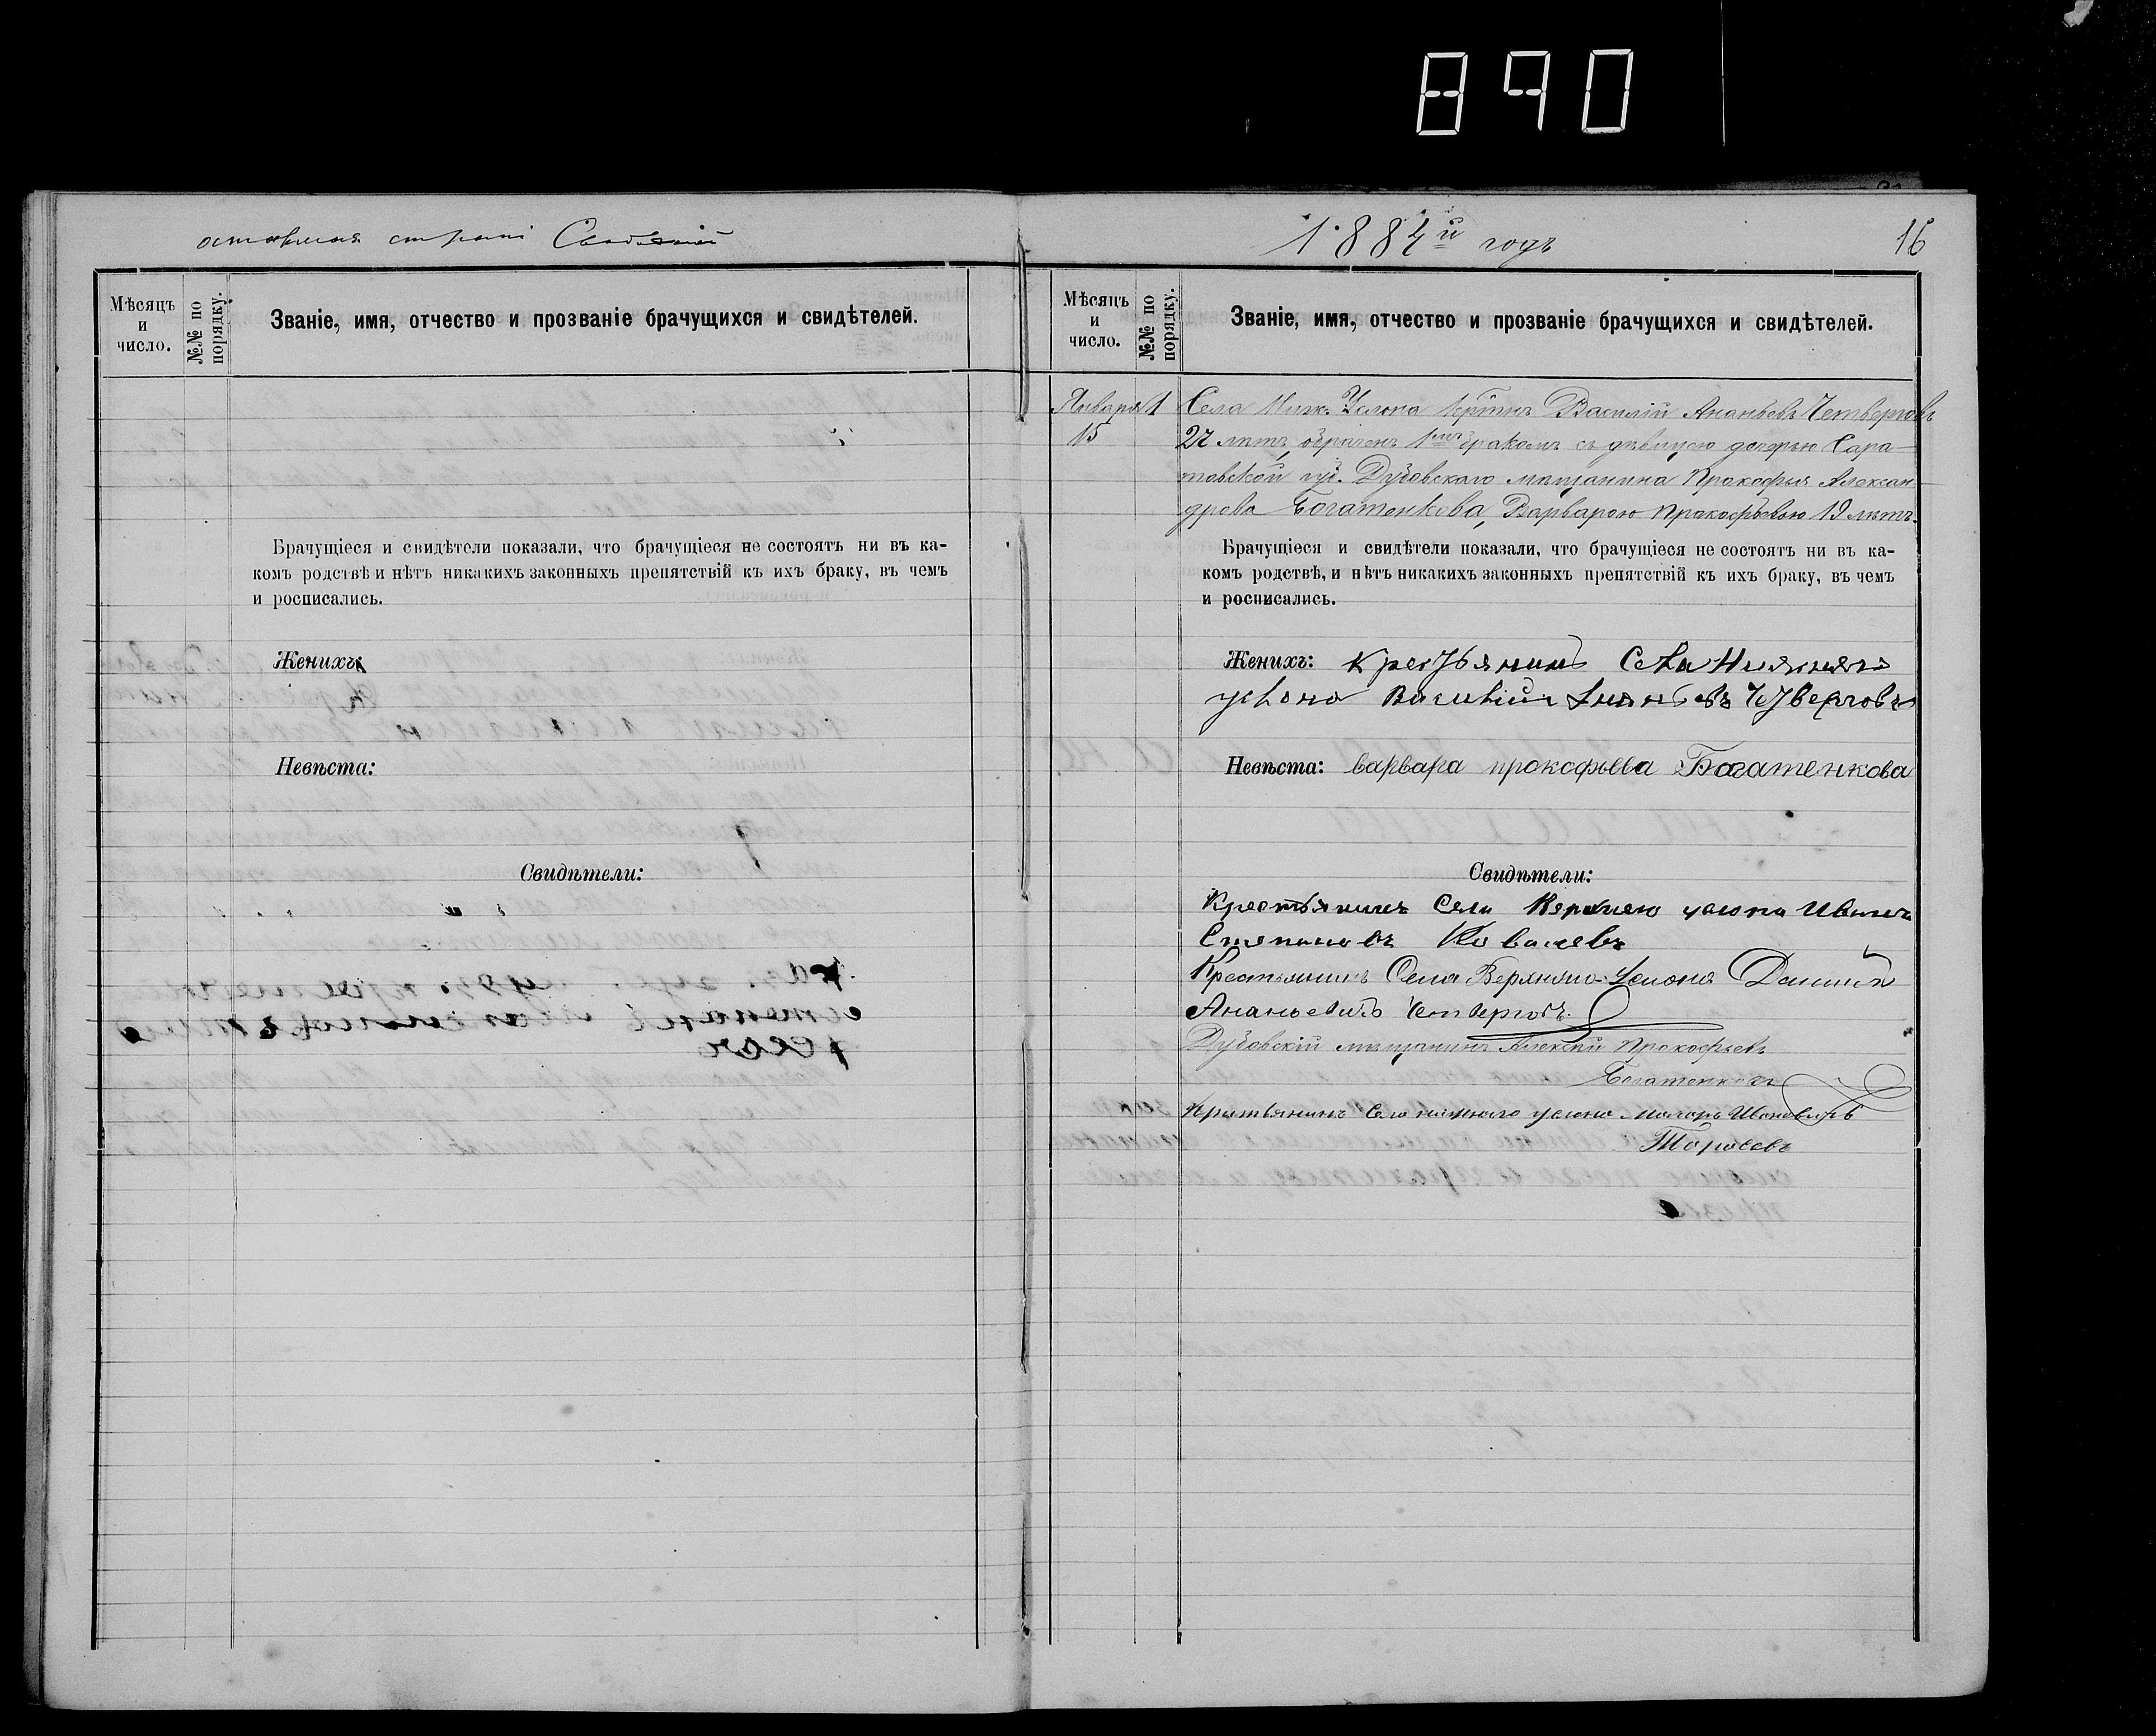 890
1884й годъ
16
Мѣсяцъ и число.
№№ по порядку.
Званіе, имя, отчество и прозваніе брачущихся и свидѣтелей.
Брачущіеся и свидѣтели показали, что брачущіеся не состоятъ ни въ ка-
комъ родствѣ и нѣтъ никакихъ законныхъ препятствій къ ихъ браку, въ чемъ
и росписались.
Женихъ:
Невѣста:
Свидѣтели:
Мѣсяцъ и число.
№№ по порядку.
Званіе, имя, отчество и прозваніе брачущихся и свидѣтелей.
Января 1 Села Ниж. Услона Василій Ананьевъ Четверговъ
15 27 лѣтъ, 1мъ бракомъ съ дѣвицею дочерью Сара-
товской губ. Дубовскаго мѣщанина Прокофья Алексан
дрова Богатенкова, Варварою Прокофьевою 19 лѣтъ.
Брачущіеся и свидѣтели показали, что брачущіеся не состоятъ ни въ ка-
комъ родствѣ, и нѣтъ никакихъ законныхъ препятствій къ ихъ браку, въ чемъ
и росписались.
Женихъ: крестьянинъ Села Нижняго
услона Василій Ананьевъ Четверговъ
Невѣста: варвара прокофьева Богатенкова
Свидѣтели:
Крестьянинъ Села Верхнего услона Иванъ
Степановъ Ковалевъ
Крестьянинъ Села Верхняго Услона
Ананьевичъ Четверговъ
Дубовскій мѣщанинъ Алексѣй Прокофьевъ
Богатенковъ
Села нижнаго услона Ивановичъ